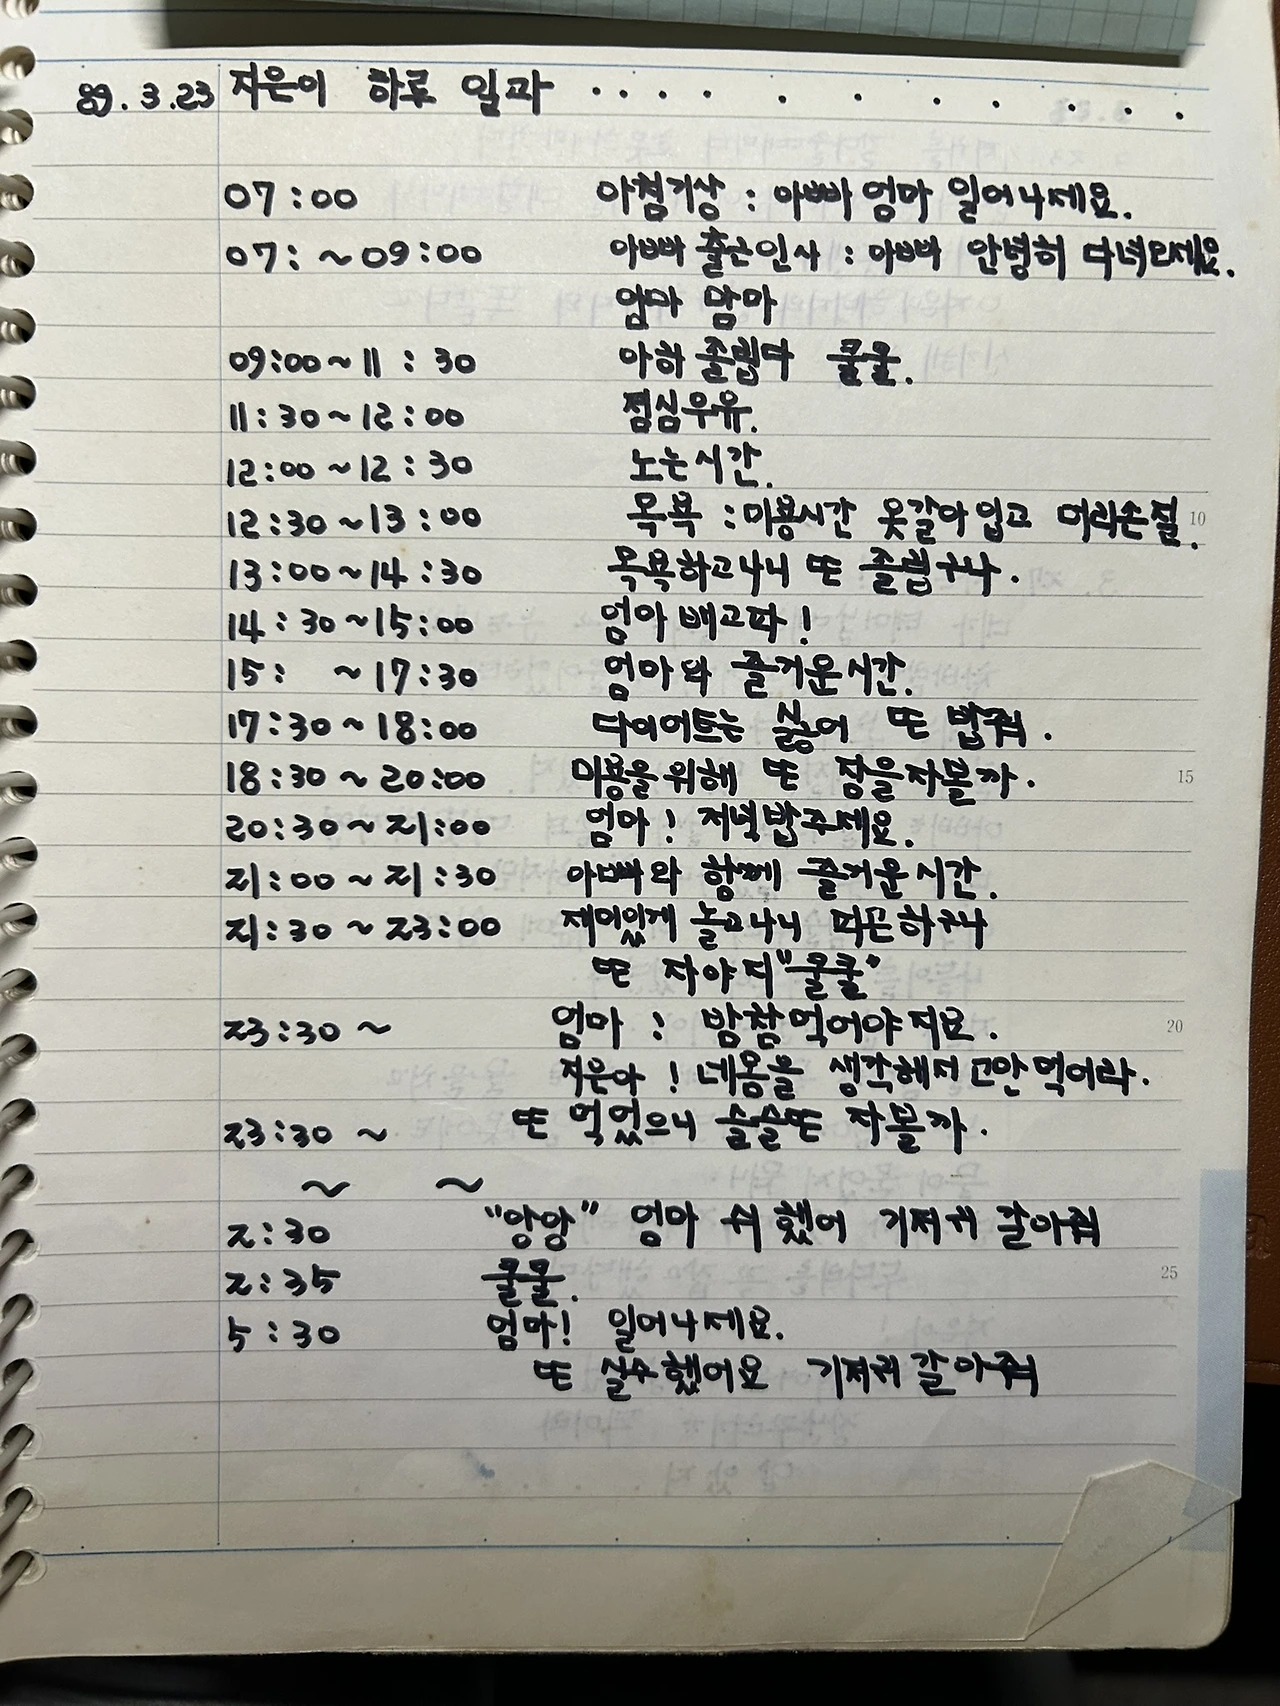 89.3.23 지은이 하루 일과 . . . . . . . . . . .
07:00 아침기상 : 아빠 엄마 일어나세요.
07: ~09:00 아빠 출근인사 : 아빠 안녕히 다녀오세요.
엄마 맘마
09:00~11:30 아하 졸립다 쿨쿨.
11:30~12:00 점심우유.
12:00~12:30 노는시간.
12:30~13:00 목욕 : 미용시간 옷갈아 입고 머리손질. 10
13:00~14:30 목욕하고나니 또 졸립구나.
14:30~15:00 엄마 배고파!
15: ~17:30 엄마와 즐거운시간.
17:30~18:00 다이어트는 싫어 또 밥줘.
18:30~20:00 미용을 위해 또 잠을자볼까. 15
20:30~21:00 엄마! 저녁밥주세요.
21:00~21:30 아빠와 함께 즐거운시간.
21:30~23:00 재미있게 놀고나니 피곤하구나
또 자야지"쿨쿨"
23:30~ 엄마 : 밤참먹어야지요. 20
지은아! 네몸을 생각해서 고만먹어라.
23:30~ 또 먹었으니 슬슬또 자볼까.
~ ~
2:30 "앙앙" 엄마 쉬했어 기저귀 갈아줘
2:35 쿨쿨. 25
5:30 엄마! 일어나세요.
또 실수했어요 기저귀갈아줘